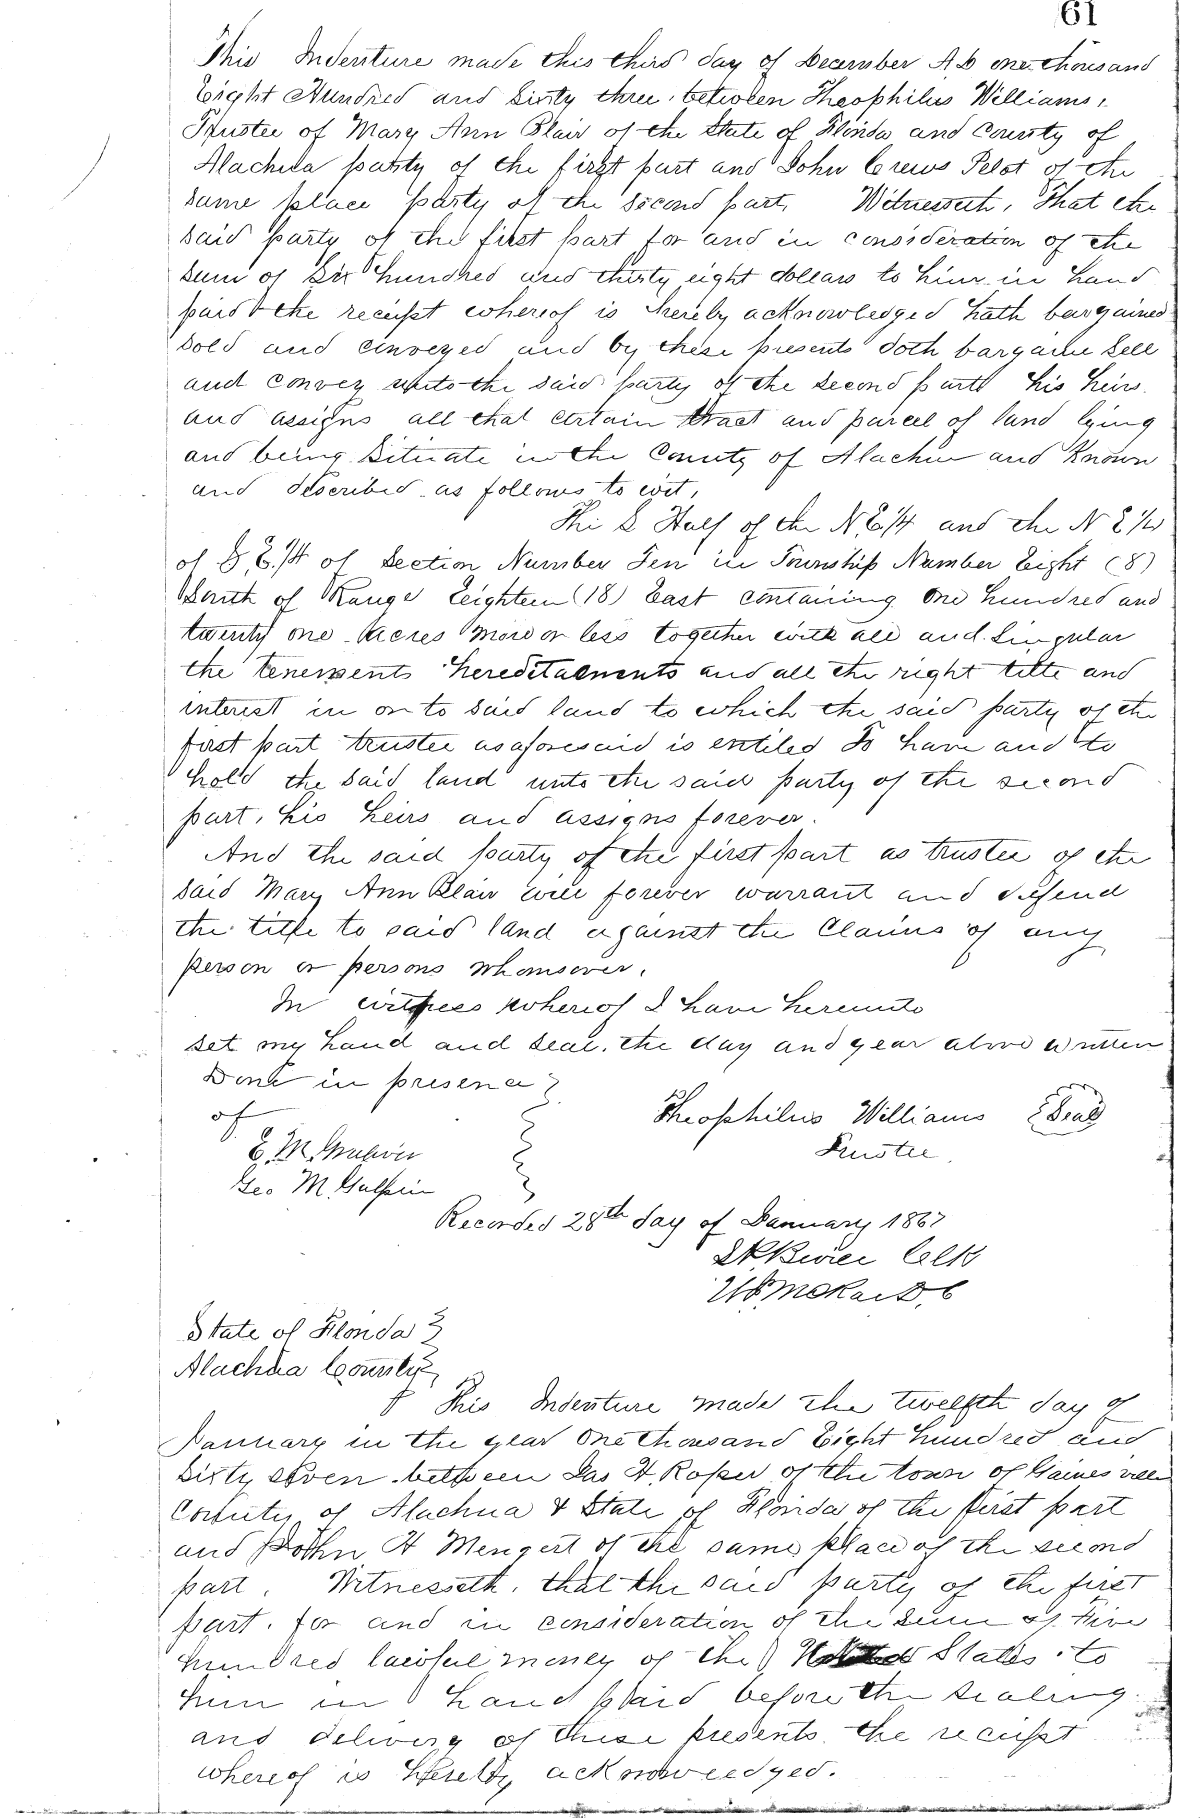 61
This Indenture made this third day of December A D one thousand
Eight Hundred and Sixty three, between Theophilus Williams,
Trustee of Mary Ann Blair of the State of Florida and County of
Alachua party of the first part and John Crews Pelot of the
same place party of the second part, Witnesseth, That the
said party of the first part for and in consideration of the
sum of Six hundred and thirty eight dollars to him in hand
paid & the receipt whereof is hereby acknowledged hath bargained
sold and conveyed and by these presents doth bargain sell
and convey unto the said party of the second part his heirs
and assigns all that certain tract and parcel of land lying
and being situate in the County of Alachua and Known
and described as follows to wit,
The S Half of the N.E.1/4 and the N E 1/4
of S.E.1/4 of Section Number Ten in Township Number Eight (8)
South of Range Eighteen (18) East containing One hundred and
twenty one Acres more or less together with all and singular
the tenements hereditaments and all the right title and
interest in or to said land to which the said party of the
first part trustee as aforesaid is entiled To have and to
hold the said land unto the said party of the second
part, his heirs and assigns forever.
And the said party of the first part as trustee of the
said Mary Ann Blair will forever warrant and defend
the title to said land against the Claims of any
person or persons whomsover.
In witness whereof I have hereunto
set my hand and seal, the day and year above written
Done in presence
of
Theophilus Williams Seal
Trustee
Geo M. Galphin
Recorded 28th day of January 1867
Clk
State of Florida
Alachua County
This Indenture made the twelfth day of
January in the year One thousand Eight hundred and
Sixty seven between Jas H. Roper of the town of Gainesville
County of Alachua & State of Florida of the first part
and John H Mengert of the same place of the second
part. Witnesseth, that the said party of the first
part, for and in consideration of the sum of Five
hundred lawful money of the United States to
him in hand paid before the sealing
and delivery of these presents the receipt
whereof is hereby acknowledged.